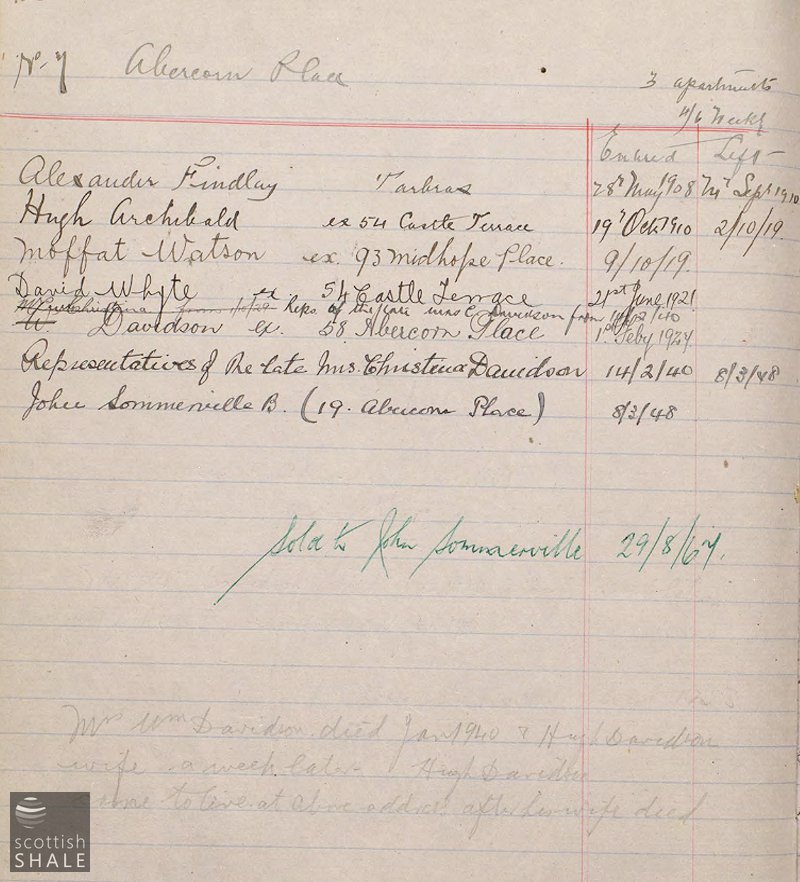 No. 7 Abercorn Place
3 apartments
4/6 Weekly
Entered Left
Alexander Findlay Tarbrax 28th May 1908 Sept 1910
Hugh Archibald ex 54 Castle Terrace 19th Oct. 1910 2/10/19.
Moffat Watson ex. 93 Midhope Place. 9/10/19.
David Whyte ex 54 Castle Terrace 21st June 1921
Christina from Reps of the late Mrs C. Davidson from 14/2/40
Davidson ex. 58 Abercorn Place 1st Feby 1927
Representatives of the late Mrs. Christina Davidson 14/2/40 8/3/48
John Sommerville B. (19. Abercorn Place) 8/3/48
Sold to John Sommerville 29/8/67.
Mrs Wm Davidson died Jan 1940 & Hugh Davidson
wife a week later Hugh Davidson
came to live at above address after his wife died
scottish
SHALE